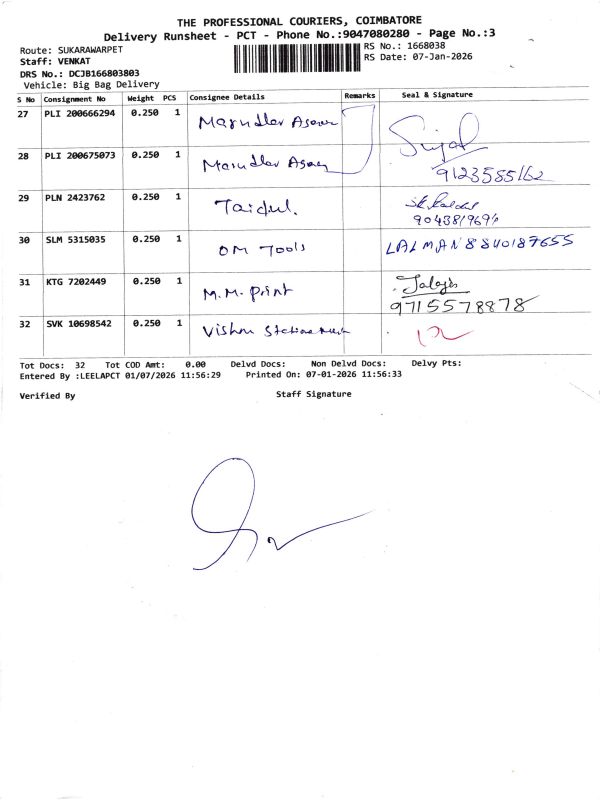 THE PROFESSIONAL COURIERS, COIMBATORE
Delivery Runsheet - PCT - Phone No.:9047080280 - Page No.:3
Route: SUKARAWARPET
RS No.: 1668038
Staff: VENKAT
RS Date: 07-Jan-2026
DRS No.: DCJB166803803
Vehicle: Big Bag Delivery
S No Consignment No Weight PCS Consignee Details Remarks Seal & Signature
27 PLI 200666294 0.250 1
28 PLI 200675073 0.250 1
9123585162
29 PLN 2423762 0.250 1 Taidul.
30 SLM 5315035 0.250 1 OM Tools LALMAN 8840187655
31 KTG 7202449 0.250 1 M.M. Print
9715578878
32 SVK 10698542 0.250 1 Vishnu
Tot Docs: 32 Tot COD Amt: 0.00 Delvd Docs: Non Delvd Docs: Delvy Pts:
Entered By :LEELAPCT 01/07/2026 11:56:29 Printed On: 07-01-2026 11:56:33
Verified By Staff Signature